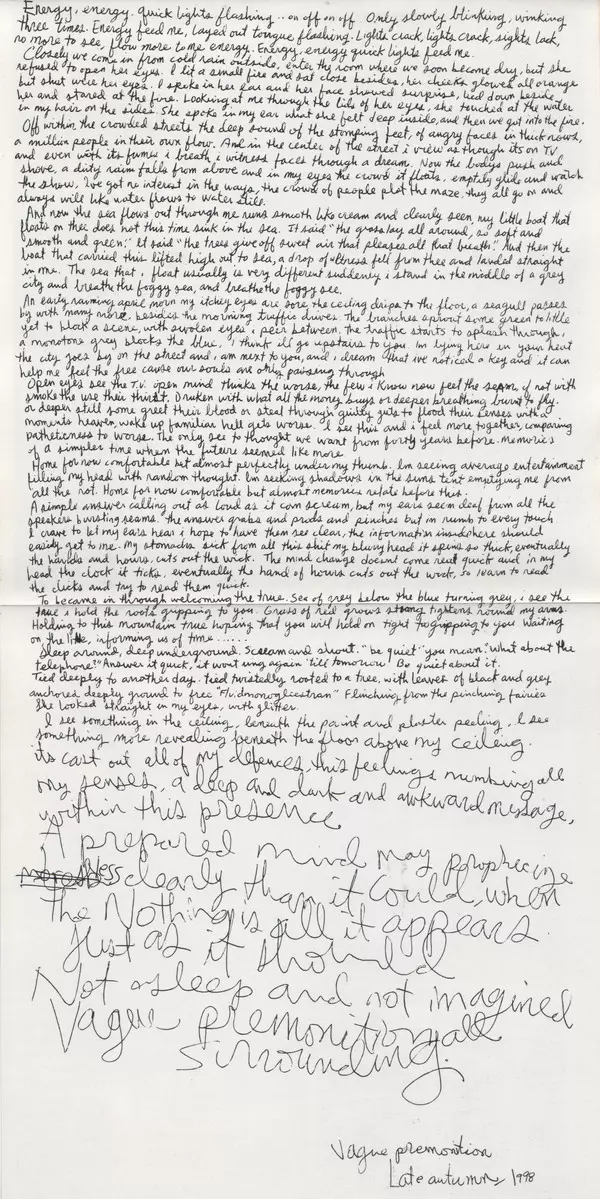 Energy, energy, quick lights flashing... on off on off Only slowly blinking, winking
three times. Energy feed me, layed out tongue flashing. Lights crack, lights crack, sights lack,
no more to see, flow more to me energy. Energy, energy quick lights feed me.
Closely we come in from cold rain outside, enter the room where we soon become dry, but she
refused to open her eyes. I lit a small fire and sat close besides, her cheeks glowed all orange
but shut were her eyes. I spoke in her ear and her face showed surprise, lied down beside
her and stared at the fire. Looking at me through the lids of her eyes, she touched at the water
in my hair on the sides. She spoke in my ear what she felt deep inside, and then we got into the fire.
Off within the crowded streets the deep sound of the stomping feet, of angry faces in thick rows,
a million people in their own flow. And in the center of the street i view as though its on TV
and even with its fumes i breath i witness faces through a dream. Now the bodys push and
shove, a dirty rain falls from above and in my eyes the crowd it floats, emptily glide and watch
the show, I've got no interest in the ways, the crowd of people plot the maze, they all go on and
always will like water flows to water still.
And now the sea flows out through me runs smooth like cream and clearly seen, my little boat that
floats on thee does not this time sink in the sea. It said "the grass lay all around, so soft and
smooth and green," It said "the trees give off sweet air that pleases all that breath." And then the
boat that carried this lifted high out to sea, a drop of fell from thee and landed straight
in me. The sea that i float usually is very different suddenly i stand in the middle of a grey
city and breathe the foggy sea, and breathe the foggy see.
An early raining april morn my itchey eyes are sore, the ceiling drips to the floor, a seagull passes
by with many more, besides the morning traffic drives. The branches sprout some green to little
yet to block a scene, with swolen eyes i peer between, the traffic starts to splash through,
a monotone grey blocks the blue, i think ill go upstairs to you. Im lying here in your heart
the city goes by on the street and i am next to you, and i dream that ive noticed a key and it can
help me feel the free cause our souls are only passing through
Open eyes see the T.V. open mind thinks the worse, the few i know now feel the seam, if not with
smoke the use their thirst. Druken with what all the money buys or deeper breathing burnt to fly.
or deeper still some greet their blood or steal through guilty guts to flood their senses with a
moments heaven, wake up familiar hell gets worse. I see this and i feel more together, comparing
patheticness to worse. The only see to thought we want from forty years before. Memories
of a simpler time when the future seemed like more
Home for now comfortable but almost perfectly under my thumb. Im seeing average entertainment
filling my head with random thought. Im seeking shadows in the suns tent emptying me from
all the rot. Home for now comfortable but almost memories relate before this.
A simple answer calling out as loud as it can scream, but my ears seem deaf from all the
speakers bursting seams. The answer grabs and prods and pinches but im numb to every touch
I crave to let my ears hear i hope to have them see clear, the information inside where should
easily get to me. My stomachs sick from all this shit my blurry head it spins so thick, eventually
the hands and hours, cuts out the wick. The mind change doesnt come real quick and in my
head the clock it ticks, eventually the hand of hours cuts out the wick, so learn to read
the clicks and try to read them quick.
To became in through welcoming the true. Sea of grey below the blue turning grey, i see the
true i hold the roots gripping to you. Grass of red grows strong tightens round my arms.
Holding to this mountain true hoping that you will hold on tight to gripping to you waiting
on the, informing us of time.......
Sleep around, deep underground. Scream and shout. "be quiet" you mean? "What about the
telephone?" Answer it quick, it wont ring again 'till tomorrow. Be quiet about it.
Tied deeply to another day. tied twistedly rooted to a tree, with leaves of black and grey
anchored deeply ground to free Flinching from the pinching fairies
She looked straight in my eyes, with glitter.
I see something in the ceiling, beneath the paint and plaster peeling, I see
something more revealing beneath the floor above my ceiling.
its cast out all of my defences, this feelings numbing all
my senses, a deep and dark and awkward message,
within this presence
A prepared mind may prophecize
less clearly than it could, when
the Nothing is all it appears.
Just as it should
Not asleep and not imagined
Vague premonitions all
surrounding.
Vague premonition
Late autumn 1998